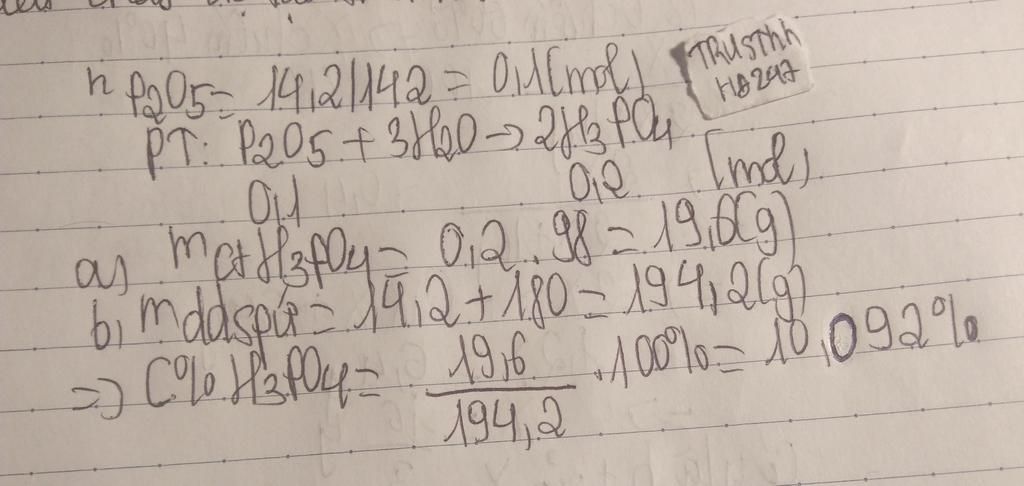 n P2O5 = 14,2/142 = 0,1(mol)
TRUSThh
HB247
PT: P2O5 + 3H2O → 2H3PO4
0,1 0,2 (mol)
a) mct H3PO4 = 0,2 . 98 = 19,6(g)
b, mddspư = 14,2 + 180 = 194,2(g)
=> C% H3PO4 = 19,6/194,2 . 100% = 10,092%